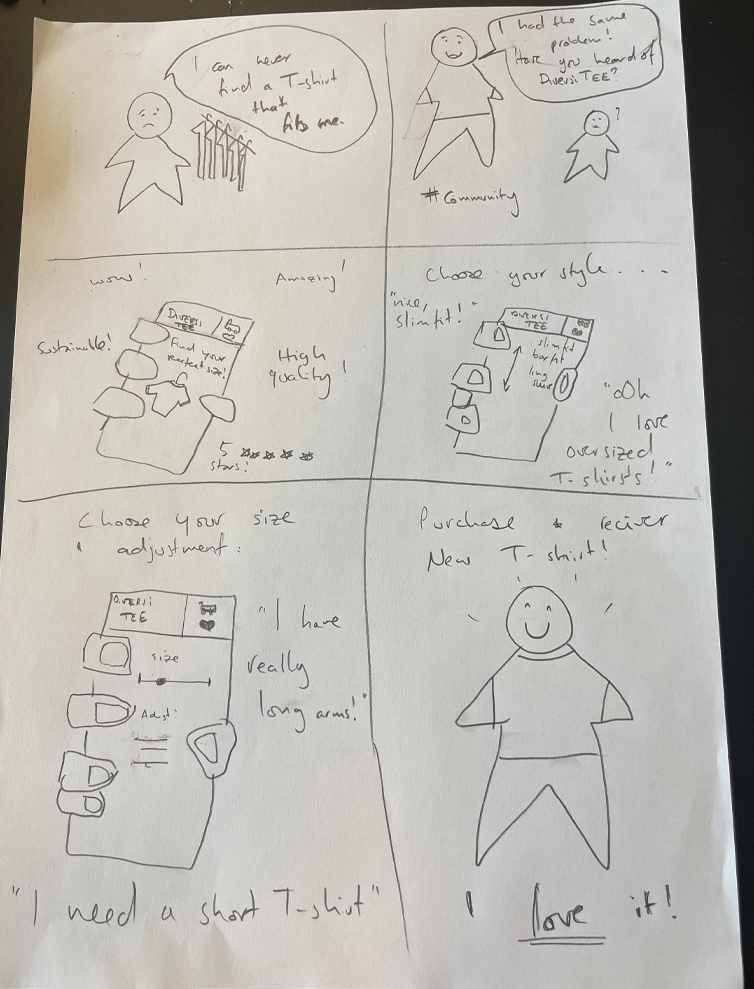 I can never
find a T-shirt
that
fits me.
I had the same
problem!
Have you heard of
DiversiTEE?
?
# Community
wow!
Amazing!
Sustainable!
DIVERSI
TEE
Find your
perfect size!
High
quality!
5
stars!
Choose your style....
"nice,
slim fit!"
DIVERSI
TEE
slim fit
box fit
long
"Ooh
I love
oversized
T-shirts!"
Choose your size
adjustment:
DIVERSI
TEE
size
Adjst:
"I have
really
long arms!"
"I need a short T-shirt"
Purchase & reciver
New T-shirt!
I love it!